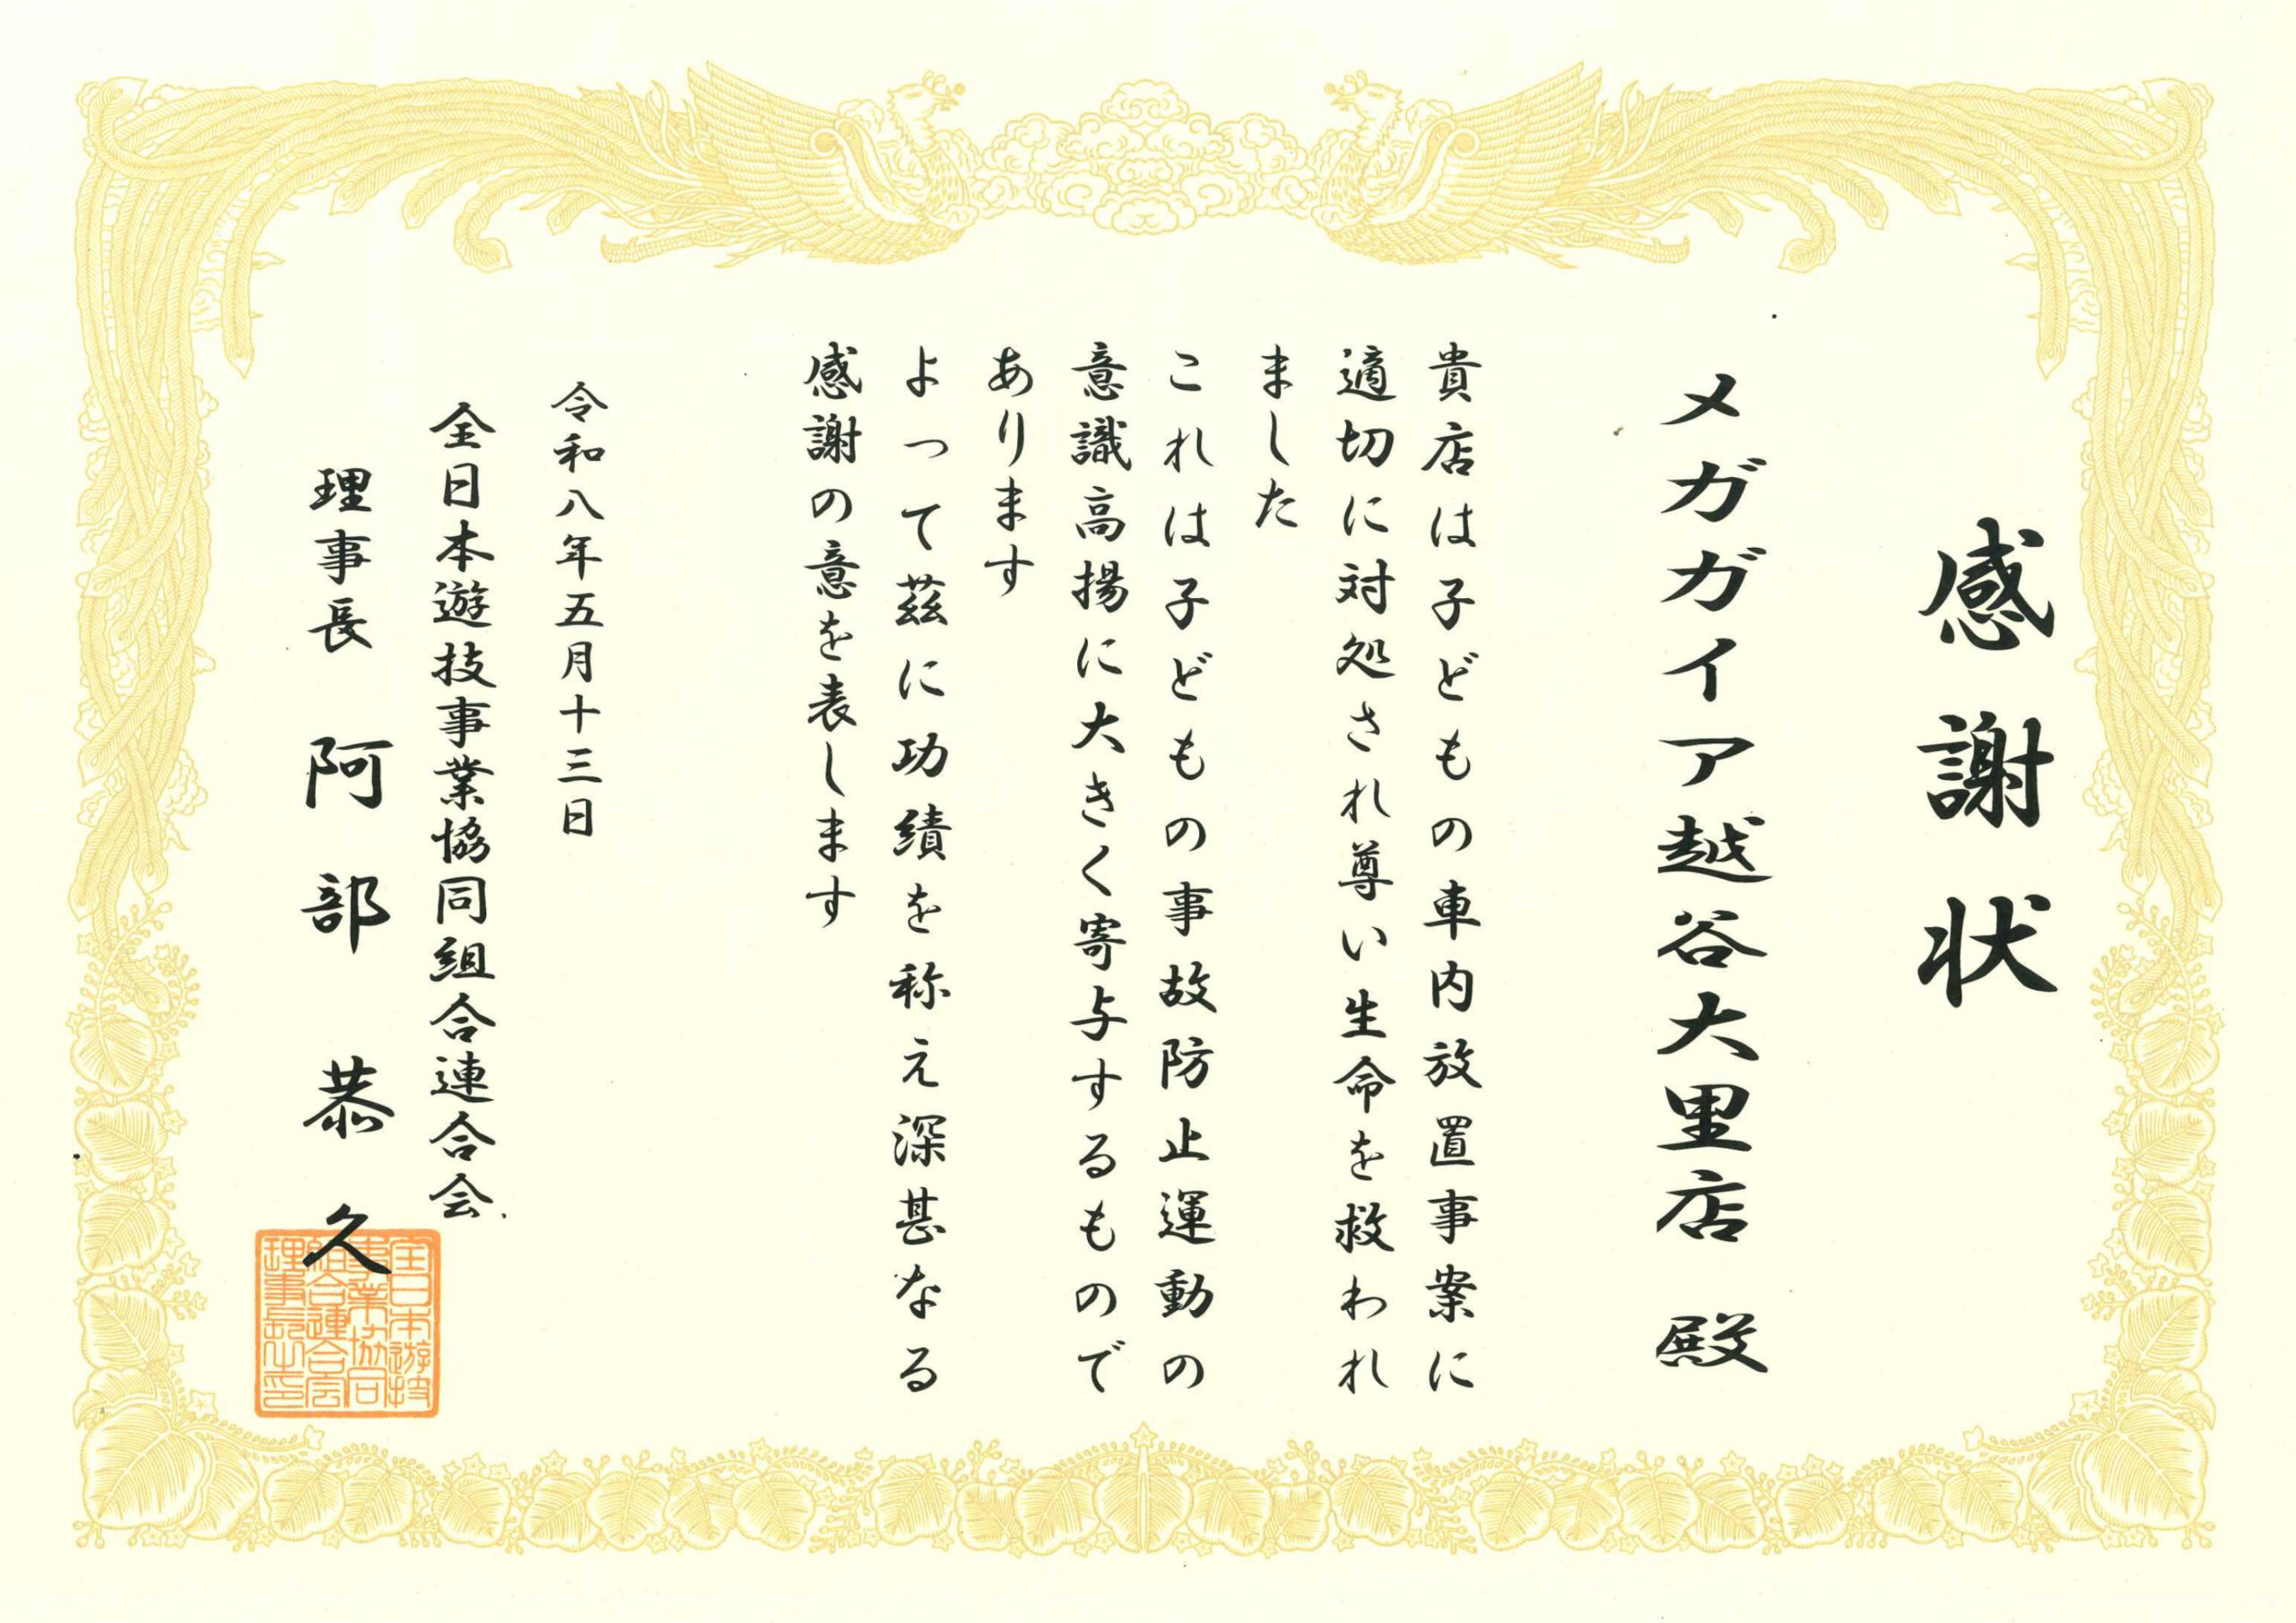 感謝状
メガガイア越谷大里店 殿
貴店は子どもの車内放置事案に
適切に対処され尊い生命を救われ
ました
これは子どもの事故防止運動の
意識高揚に大きく寄与するもので
あります
よって茲に功績を称え深甚なる
感謝の意を表します
令和八年五月十三日
全日本遊技事業協同組合連合会
理事長 阿部恭久
全日本遊技
事業協同
組合連合会
理事長之印